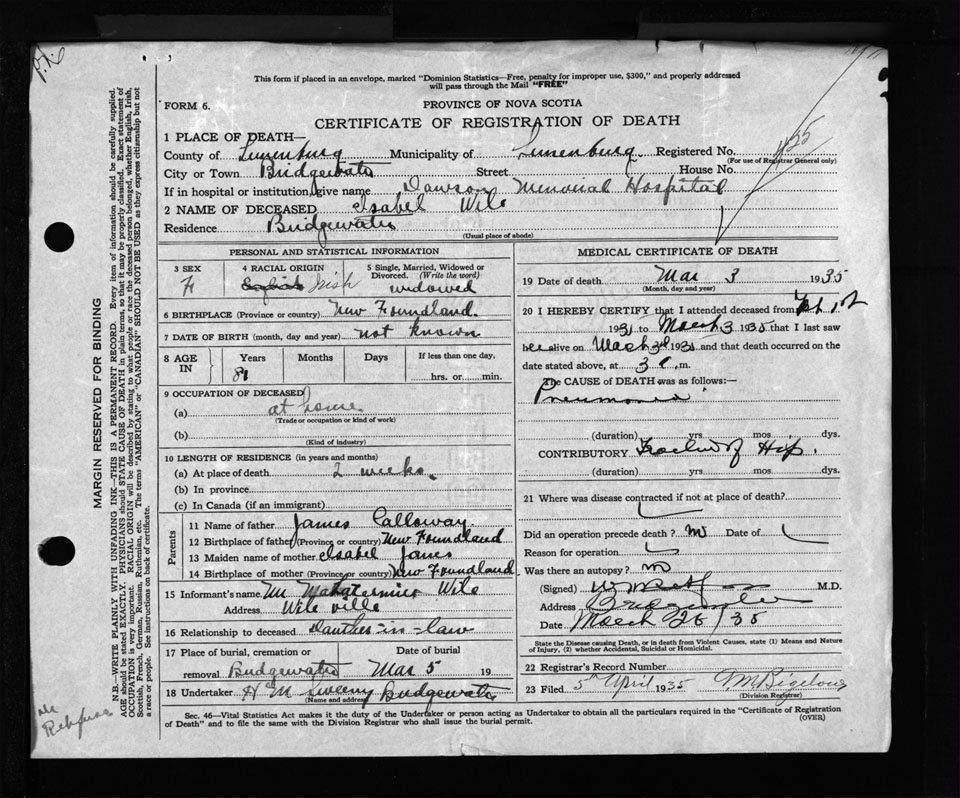 This form if placed in an envelope, marked "Dominion Statistics—Free, penalty for improper use, $300," and properly addressed
will pass through the Mail "FREE"
FORM 6.
PROVINCE OF NOVA SCOTIA
CERTIFICATE OF REGISTRATION OF DEATH
1 PLACE OF DEATH—
County of Lunenburg Municipality of Lunenburg. Registered No.
(For use of Registrar General only)
City or Town Bridgewater Street House No.
If in hospital or institution, give name Dawson Memorial Hospital
2 NAME OF DECEASED Isabel Wile
Residence Bridgewater
(Usual place of abode)
PERSONAL AND STATISTICAL INFORMATION
3 SEX
F
4 RACIAL ORIGIN
English Irish
5 Single, Married, Widowed or
Divorced. (Write the word)
widowed
6 BIRTHPLACE (Province or country) New Foundland.
7 DATE OF BIRTH (month, day and year) not known
8 AGE IN
Years Months Days If less than one day,
81 hrs. or min.
9 OCCUPATION OF DECEASED
(a) at home
(Trade or occupation or kind of work)
(b)
(Kind of industry)
10 LENGTH OF RESIDENCE (in years and months)
(a) At place of death 2 weeks.
(b) In province
(c) In Canada (if an immigrant)
Parents
11 Name of father James Calloway.
12 Birthplace of father (Province or country) New Foundland
13 Maiden name of mother Isabel Janes
14 Birthplace of mother (Province or country) New Foundland
15 Informant's name Wile
Address Wileville
16 Relationship to deceased Daughter-in-law
17 Place of burial, cremation or Date of burial
removal Bridgewater Mar 5 19
18 Undertaker H M Sweeny Bridgewater
(Name and address)
MEDICAL CERTIFICATE OF DEATH
19 Date of death Mar 3 1935
(Month, day and year)
20 I HEREBY CERTIFY that I attended deceased from Feb 1st
193 to March 3 1935 that I last saw
her alive on March 3rd 193 and that death occurred on the
date stated above, at 3 .m.
The CAUSE of DEATH was as follows:—
Pneumonia
(duration) yrs mos dys.
CONTRIBUTORY Fracture of Hip.
(duration) yrs mos dys.
21 Where was disease contracted if not at place of death?
Did an operation precede death? no Date of
Reason for operation
Was there an autopsy? no
(Signed) M.D.
Address Bridgewater
Date March 26/35
State the Disease causing Death, or in death from Violent Causes, state (1) Means and Nature
of Injury, (2) whether Accidental, Suicidal or Homicidal.
22 Registrar's Record Number
23 Filed 5th April 1935 G M Bigelow
(Division Registrar)
Sec. 46—Vital Statistics Act makes it the duty of the Undertaker or person acting as Undertaker to obtain all the particulars required in the "Certificate of Registration
of Death" and to file the same with the Division Registrar who shall issue the burial permit.
(OVER)
MARGIN RESERVED FOR BINDING
N.B.—WRITE PLAINLY WITH UNFADING INK—THIS IS A PERMANENT RECORD. Every item of information should be carefully supplied.
AGE should be stated EXACTLY. PHYSICIANS should STATE CAUSE OF DEATH in plain terms, so that it may be properly classified. Exact statement of
OCCUPATION is very important. RACIAL ORIGIN will be described by stating to what people or race the deceased person belonged, whether English, Irish,
Scottish, French, German, Russian, Ruthenian, etc. The terms "AMERICAN" or "CANADIAN" SHOULD NOT BE USED as they express citizenship but not
a race or people. See instructions on back of certificate.